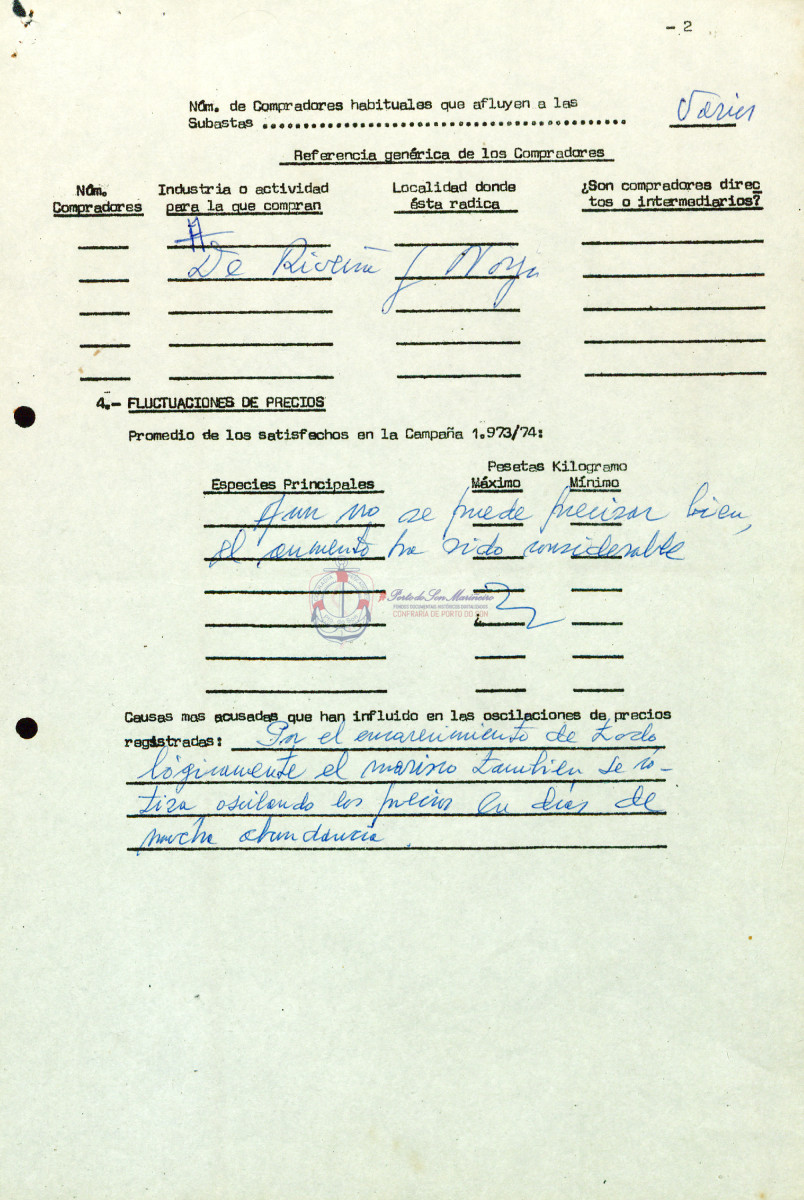 - 2
Núm. de Compradores habituales que afluyen a las
Subastas ................................................ Varios
Referencia genérica de los Compradores
Núm. Industria o actividad Localidad donde ¿Son compradores direc
Compradores para la que compran ésta radica tos o intermediarios?
De Riveira y Noya
4.- FLUCTUACIONES DE PRECIOS
Promedio de los satisfechos en la Campaña 1.973/74:
Pesetas Kilogramo
Especies Principales Máximo Mínimo
Aun no se puede precisar bien,
el aumento ha sido considerable
Porto do Son Marineiro
FONDOS DOCUMENTAIS HISTÓRICOS DIGITALIZADOS
CONFRARÍA DE PORTO DO SON
Causas mas acusadas que han influido en las oscilaciones de precios
registradas: Por el encarecimiento de todo
lógicamente el marisco tambien se co-
tiza oscilando los precios en días de
mucha abundancia.